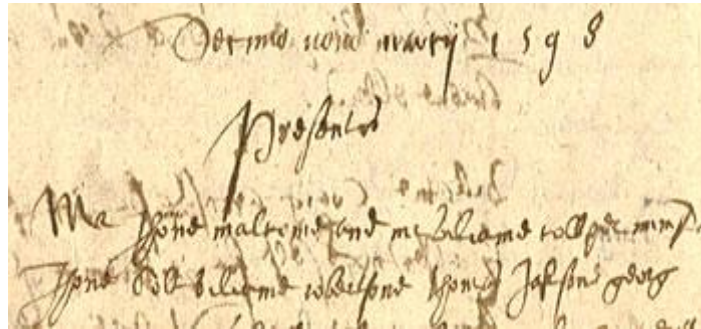 Decimo nono martij 1598
Presentes
Mr Jhone malcome and mr Williame cowper minis
Jhone Williame robertsone thomas Jaksone georg